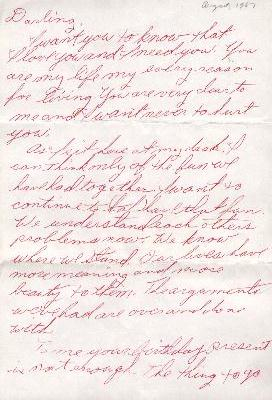 August, 1967
Darling,
I want you to know that
I love you and I need you. You
are my life my every reason
for living. You are very dear to
me and I want never to hurt
you.
As I sit here at my desk, I
can think only of the fun we
have had together. I want to
continue to have that fun.
We understand each others
problems now. We know
where we stand. Our lives have
more meaning and more
beauty to them. The arguments
we've had are over and done
with.
To me your birthday present
is not enough. The thing to go